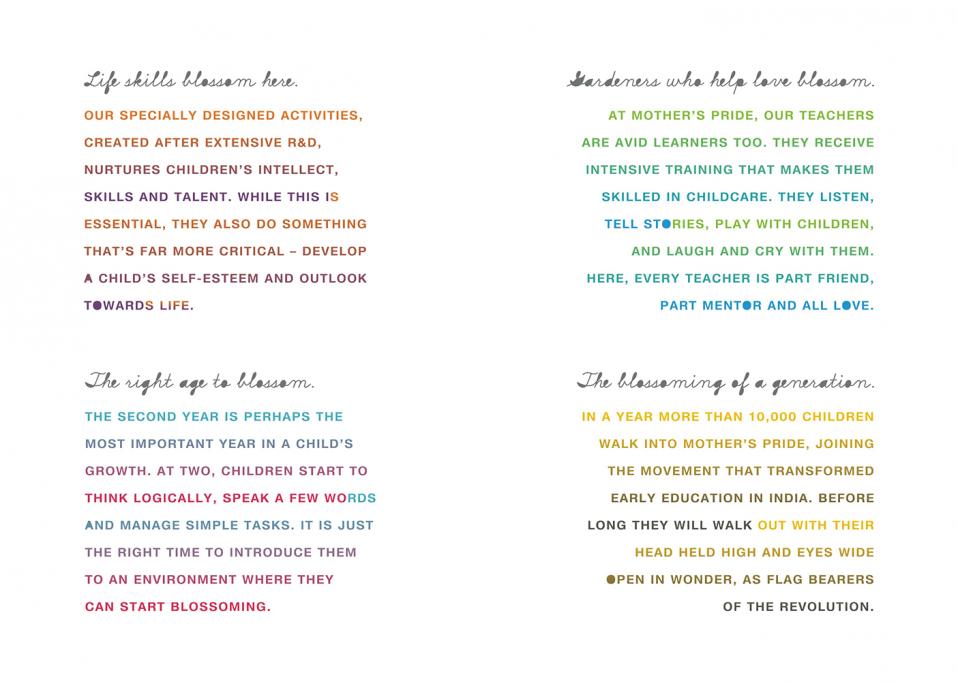 Life skills blossom here.
OUR SPECIALLY DESIGNED ACTIVITIES,
CREATED AFTER EXTENSIVE R&D,
NURTURES CHILDREN'S INTELLECT,
SKILLS AND TALENT. WHILE THIS IS
ESSENTIAL, THEY ALSO DO SOMETHING
THAT'S FAR MORE CRITICAL – DEVELOP
A CHILD'S SELF-ESTEEM AND OUTLOOK
TOWARDS LIFE.
Gardeners who help love blossom.
AT MOTHER'S PRIDE, OUR TEACHERS
ARE AVID LEARNERS TOO. THEY RECEIVE
INTENSIVE TRAINING THAT MAKES THEM
SKILLED IN CHILDCARE. THEY LISTEN,
TELL STORIES, PLAY WITH CHILDREN,
AND LAUGH AND CRY WITH THEM.
HERE, EVERY TEACHER IS PART FRIEND,
PART MENTOR AND ALL LOVE.
The right age to blossom.
THE SECOND YEAR IS PERHAPS THE
MOST IMPORTANT YEAR IN A CHILD'S
GROWTH. AT TWO, CHILDREN START TO
THINK LOGICALLY, SPEAK A FEW WORDS
AND MANAGE SIMPLE TASKS. IT IS JUST
THE RIGHT TIME TO INTRODUCE THEM
TO AN ENVIRONMENT WHERE THEY
CAN START BLOSSOMING.
The blossoming of a generation.
IN A YEAR MORE THAN 10,000 CHILDREN
WALK INTO MOTHER'S PRIDE, JOINING
THE MOVEMENT THAT TRANSFORMED
EARLY EDUCATION IN INDIA. BEFORE
LONG THEY WILL WALK OUT WITH THEIR
HEAD HELD HIGH AND EYES WIDE
OPEN IN WONDER, AS FLAG BEARERS
OF THE REVOLUTION.